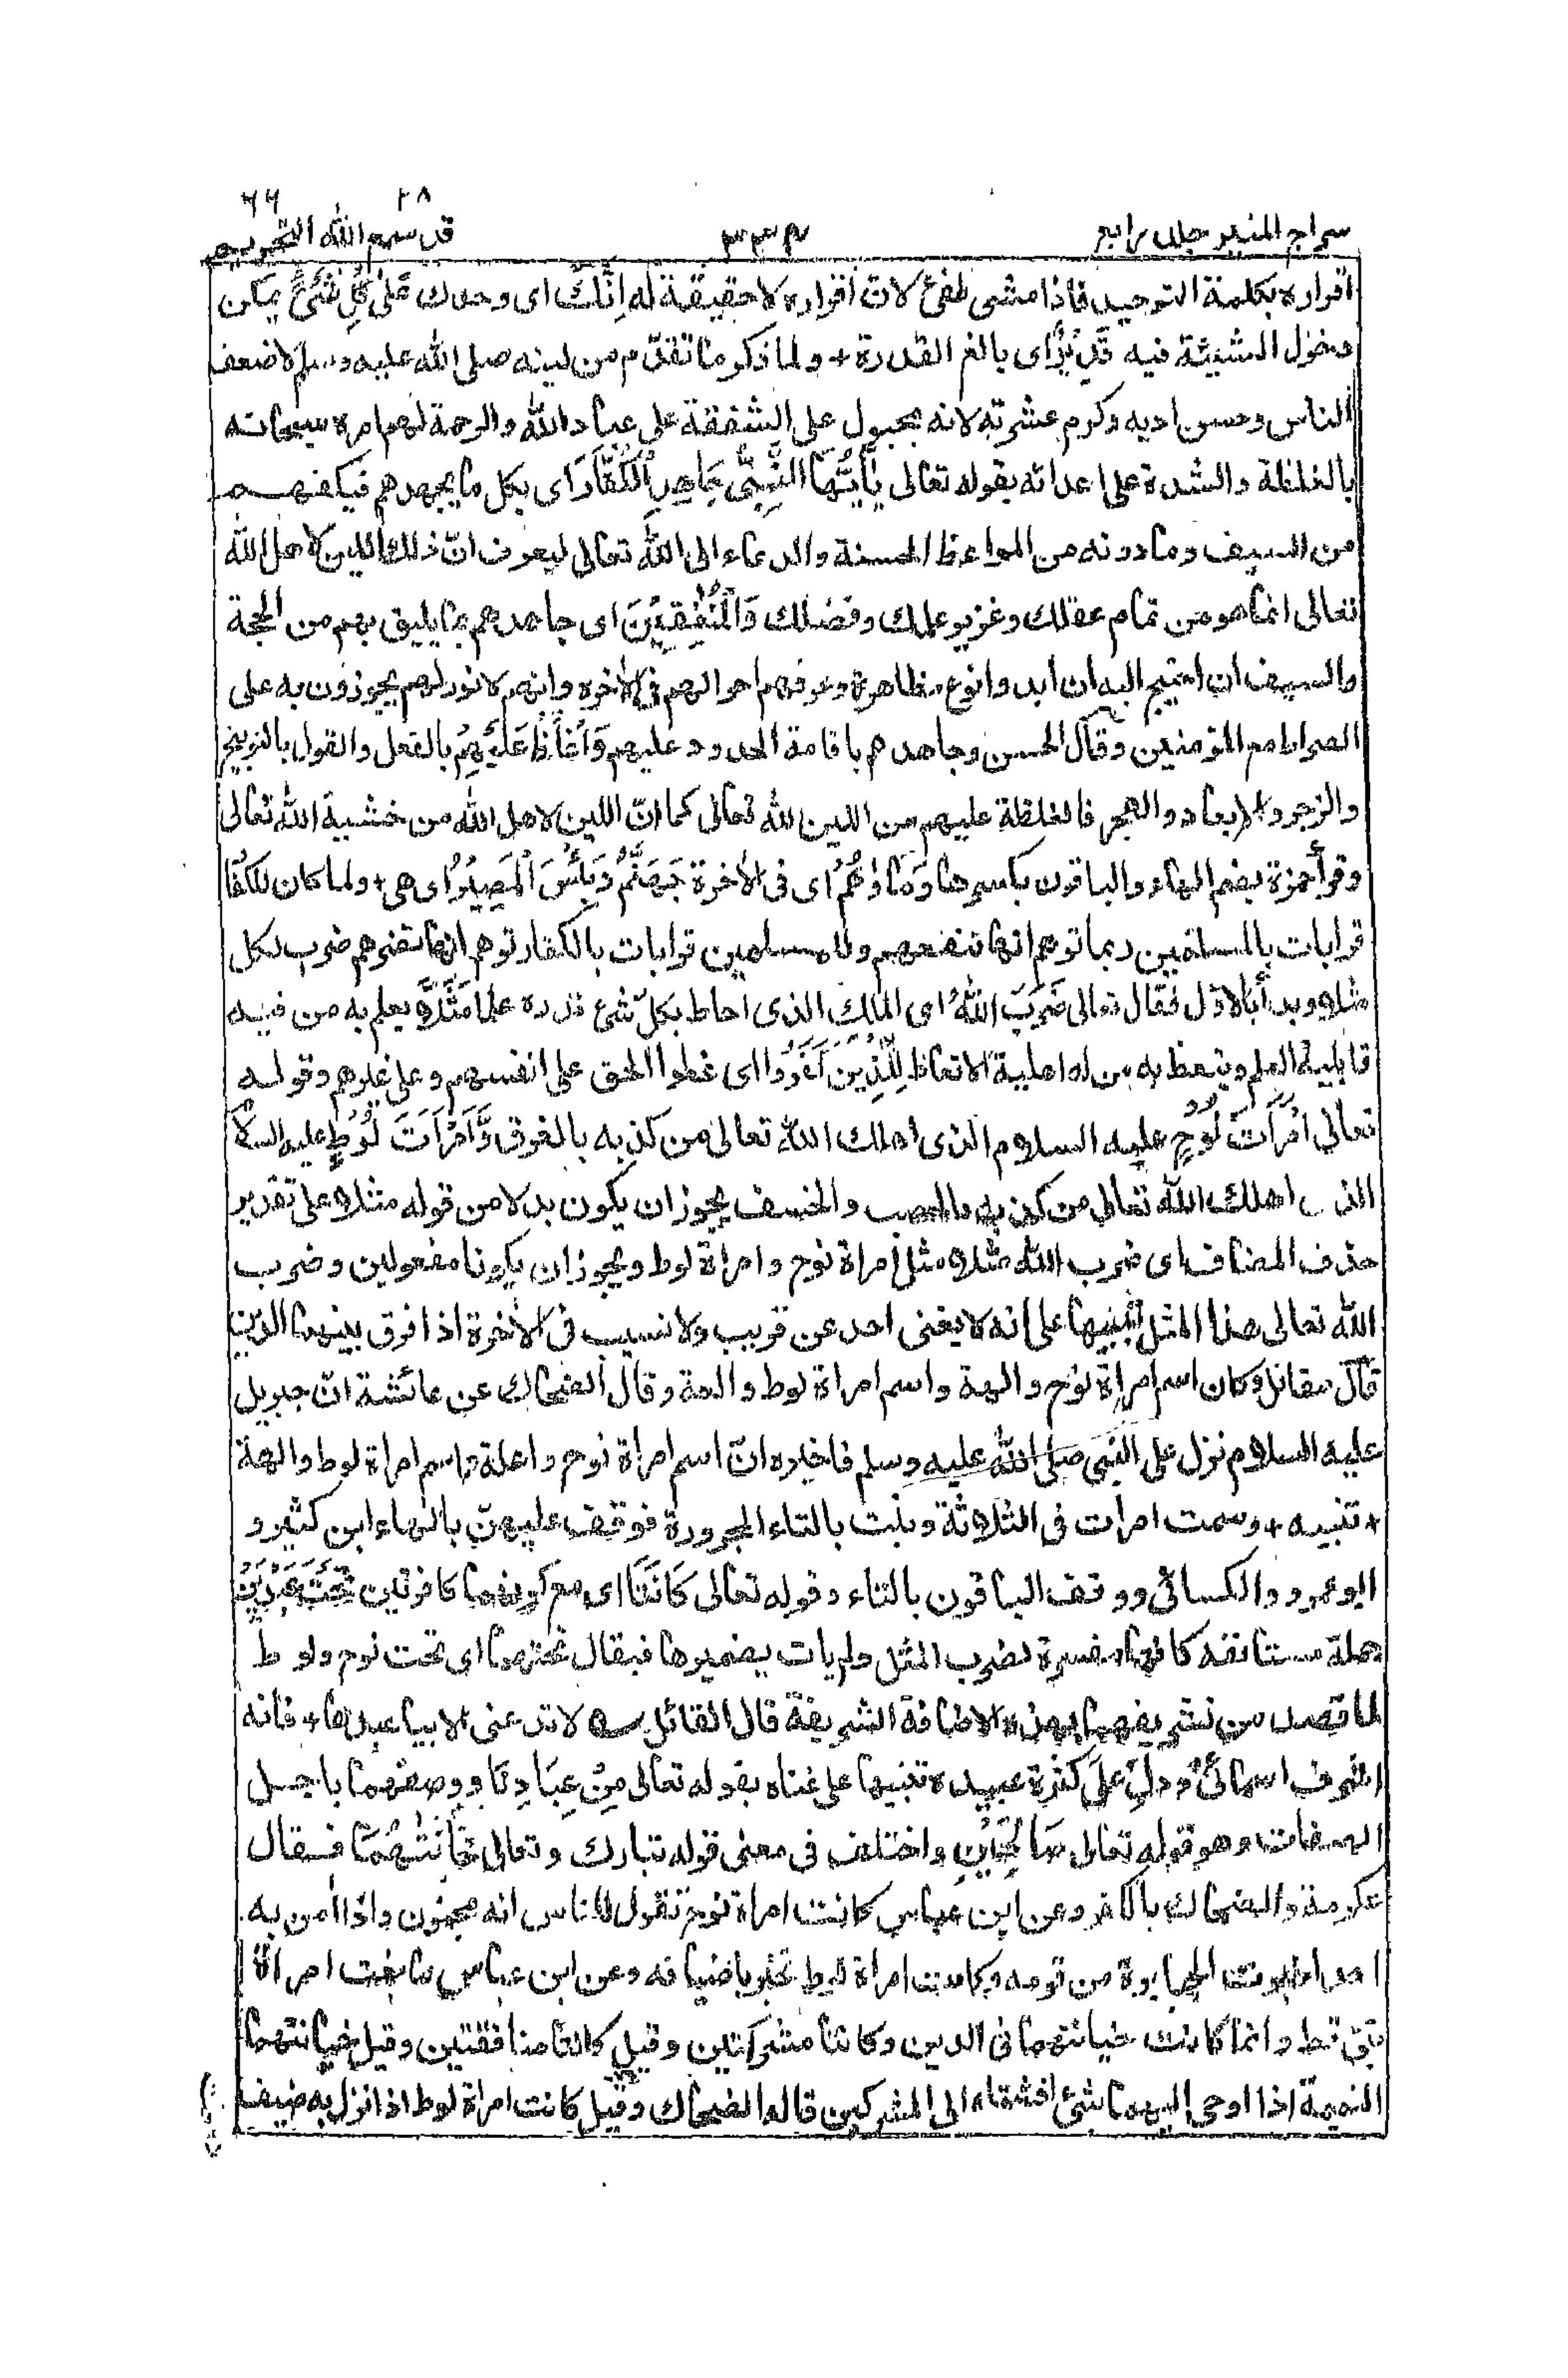 ٢٨ ٦٦
سراج المنير جلد رابع ٣٣٤ قد سمع الله التحريم
اقراره بكلمة التوحيد فاذا مشى طفئ لان اقراره لا حقيقة له اِنَّكَ اى وحدك عَلٰى كُلِّ شَىْءٍ يمكن
دخول المشيئة فيه قَدِيْرٌ اى بالغ القدرة + ولما ذكر ما تقدّم من لينه صلى الله عليه وسلم لاضعف
الناس وحسن ادبه وكرم عشرته لانه مجبول على الشفقة على عباد الله والرحمة لهم امره سبحانه
بالغلظة والشدة على اعدائه بقوله تعالى يٰٓاَيُّهَا النَّبِىُّ جَاهِدِ الْكُفَّارَ اى بكل ما يجهدهم فيكفهم
من السيف وما دونه من المواعظ الحسنة والدعاء الى الله تعالى ليعرف انّ ذلك اللين لاهل الله
تعالى انما هو من تمام عقلك وغزير علمك وفضلك وَالْمُنٰفِقِيْنَ اى جاهدهم بما يليق بهم من الحجة
والسيف ان احتيج اليه ان ابدوا نوع مظاهرة وعرفهم احوالهم فى الآخرة وانهم لا نور لهم يجوزون به على
الصراط مع المؤمنين وقال الحسن وجاهدهم باقامة الحدود عليهم وَاغْلُظْ عَلَيْهِمْ بالفعل والقول بالتوبيخ
والزجر والابعاد والهجر فالغلظة عليهم من اللين لله تعالى كما انّ اللين لاهل الله من خشية الله تعالى
وقرأ حمزة بضم الهاء والباقون بكسرها وَمَأْوٰىهُمْ اى فى الآخرة جَهَنَّمُ وَبِئْسَ الْمَصِيْرُ اى هى + ولما كان للكفا
قرابات بالمسلمين ربما توهم انها تنفعهم وللمسلمين قرابات بالكفار توهم انها تضرهم ضرب لكل
مثلا وبدأ بالاول فقال تعالى ضَرَبَ اللهُ اى الملك الذى احاط بكلّ شئ قدرة علما مَثَلًا يعلم به من فيه
قابلية العلم ويتعظ به من له اهلية الاتعاظ لِلَّذِيْنَ كَفَرُوا اى غطوا الحق على انفسهم وعلى غيرهم وقوله
تعالى امْرَاَتَ نُوْحٍ عليه السلام الذى اهلك الله تعالى من كذب به بالغرق وَّامْرَاَتَ لُوْطٍ عليه السلا
الذى اهلك الله تعالى من كذب به بالحصب والخسف يجوز ان يكون بدلا من قوله مثلا على تقدير
حذف المضاف اى ضرب الله مثلا مثل امراة نوح وامراة لوط ويجوز ان يكونا مفعولين وضرب
الله تعالى هذا المثل تنبيها على انه لا يغنى احد عن قريب ولا نسيب فى الآخرة اذا فرق بينهما الدين
قال مقاتل وكان اسم امراة نوح والهة واسم امراة لوط والعة وقال الضحاك عن عائشة انّ جبريل
عليه السلام نزل على النبى صلى الله عليه وسلم فاخبره انّ اسم امراة نوح واعلة واسم امراة لوط والهة
+ تنبيه + رسمت امرات فى الثلاثة وبنت بالتاء المجرورة فوقف عليهن بالهاء ابن كثير و
ابو عمرو والكسائى ووقف الباقون بالتاء وقوله تعالى كَانَتَا اى مع كونهما كافرتين تَحْتَ عَبْدَيْنِ
جملة مستانفة كانها مفسرة لضرب المثل ولم يات بضميرها فيقال تحتهما اى تحت نوح ولوط
لما قصد من تشريفهما بهذه الاضافة الشريفة قال القائل لا تدعنى الا بيا عبدها + فانه
اشرف اسمائى ودلّ على كثرة عبيده تنبيها على غناه بقوله تعالى مِنْ عِبَادِنَا ووصفهما باجل
الصفات وهو قوله تعالى صَالِحَيْنِ واختلف فى معنى قوله تبارك وتعالى فَخَانَتٰهُمَا فقال
عكرمة والضحاك بالكفر وعن ابن عباس كانت امراة نوح تقول للناس انه مجنون واذا اٰمن به
احد اخبرت الجبابرة من قومه وكانت امراة لوط تخبر باضيافه وعن ابن عباس ما بغت امراة
نبىّ قط وانما كانت خيانتهما فى الدين وكانتا مشركتين وقيل كانتا منافقتين وقيل خيانتهما
النميمة اذا اوحى اليهما شئ افشتاه الى المشركين قاله الضحاك وقيل كانت امراة لوط اذا نزل به ضيف